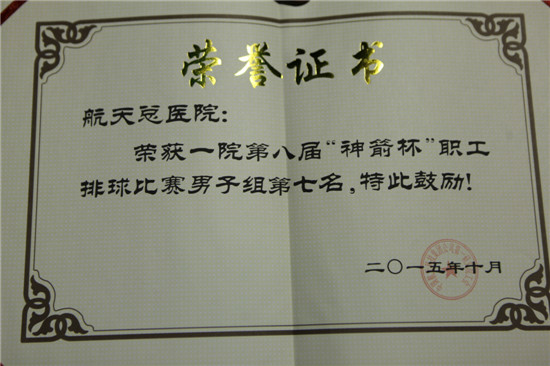 荣誉证书
航天总医院：
荣获一院第八届“神箭杯”职工
排球比赛男子组第七名，特此鼓励！
二〇一五年十月